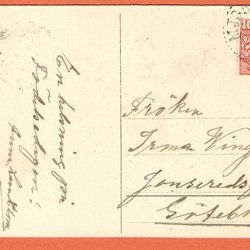 En helsning på
Födelsedagen!
Anna
Fröken
Irma Ving
Jonsereds
Göteb
10